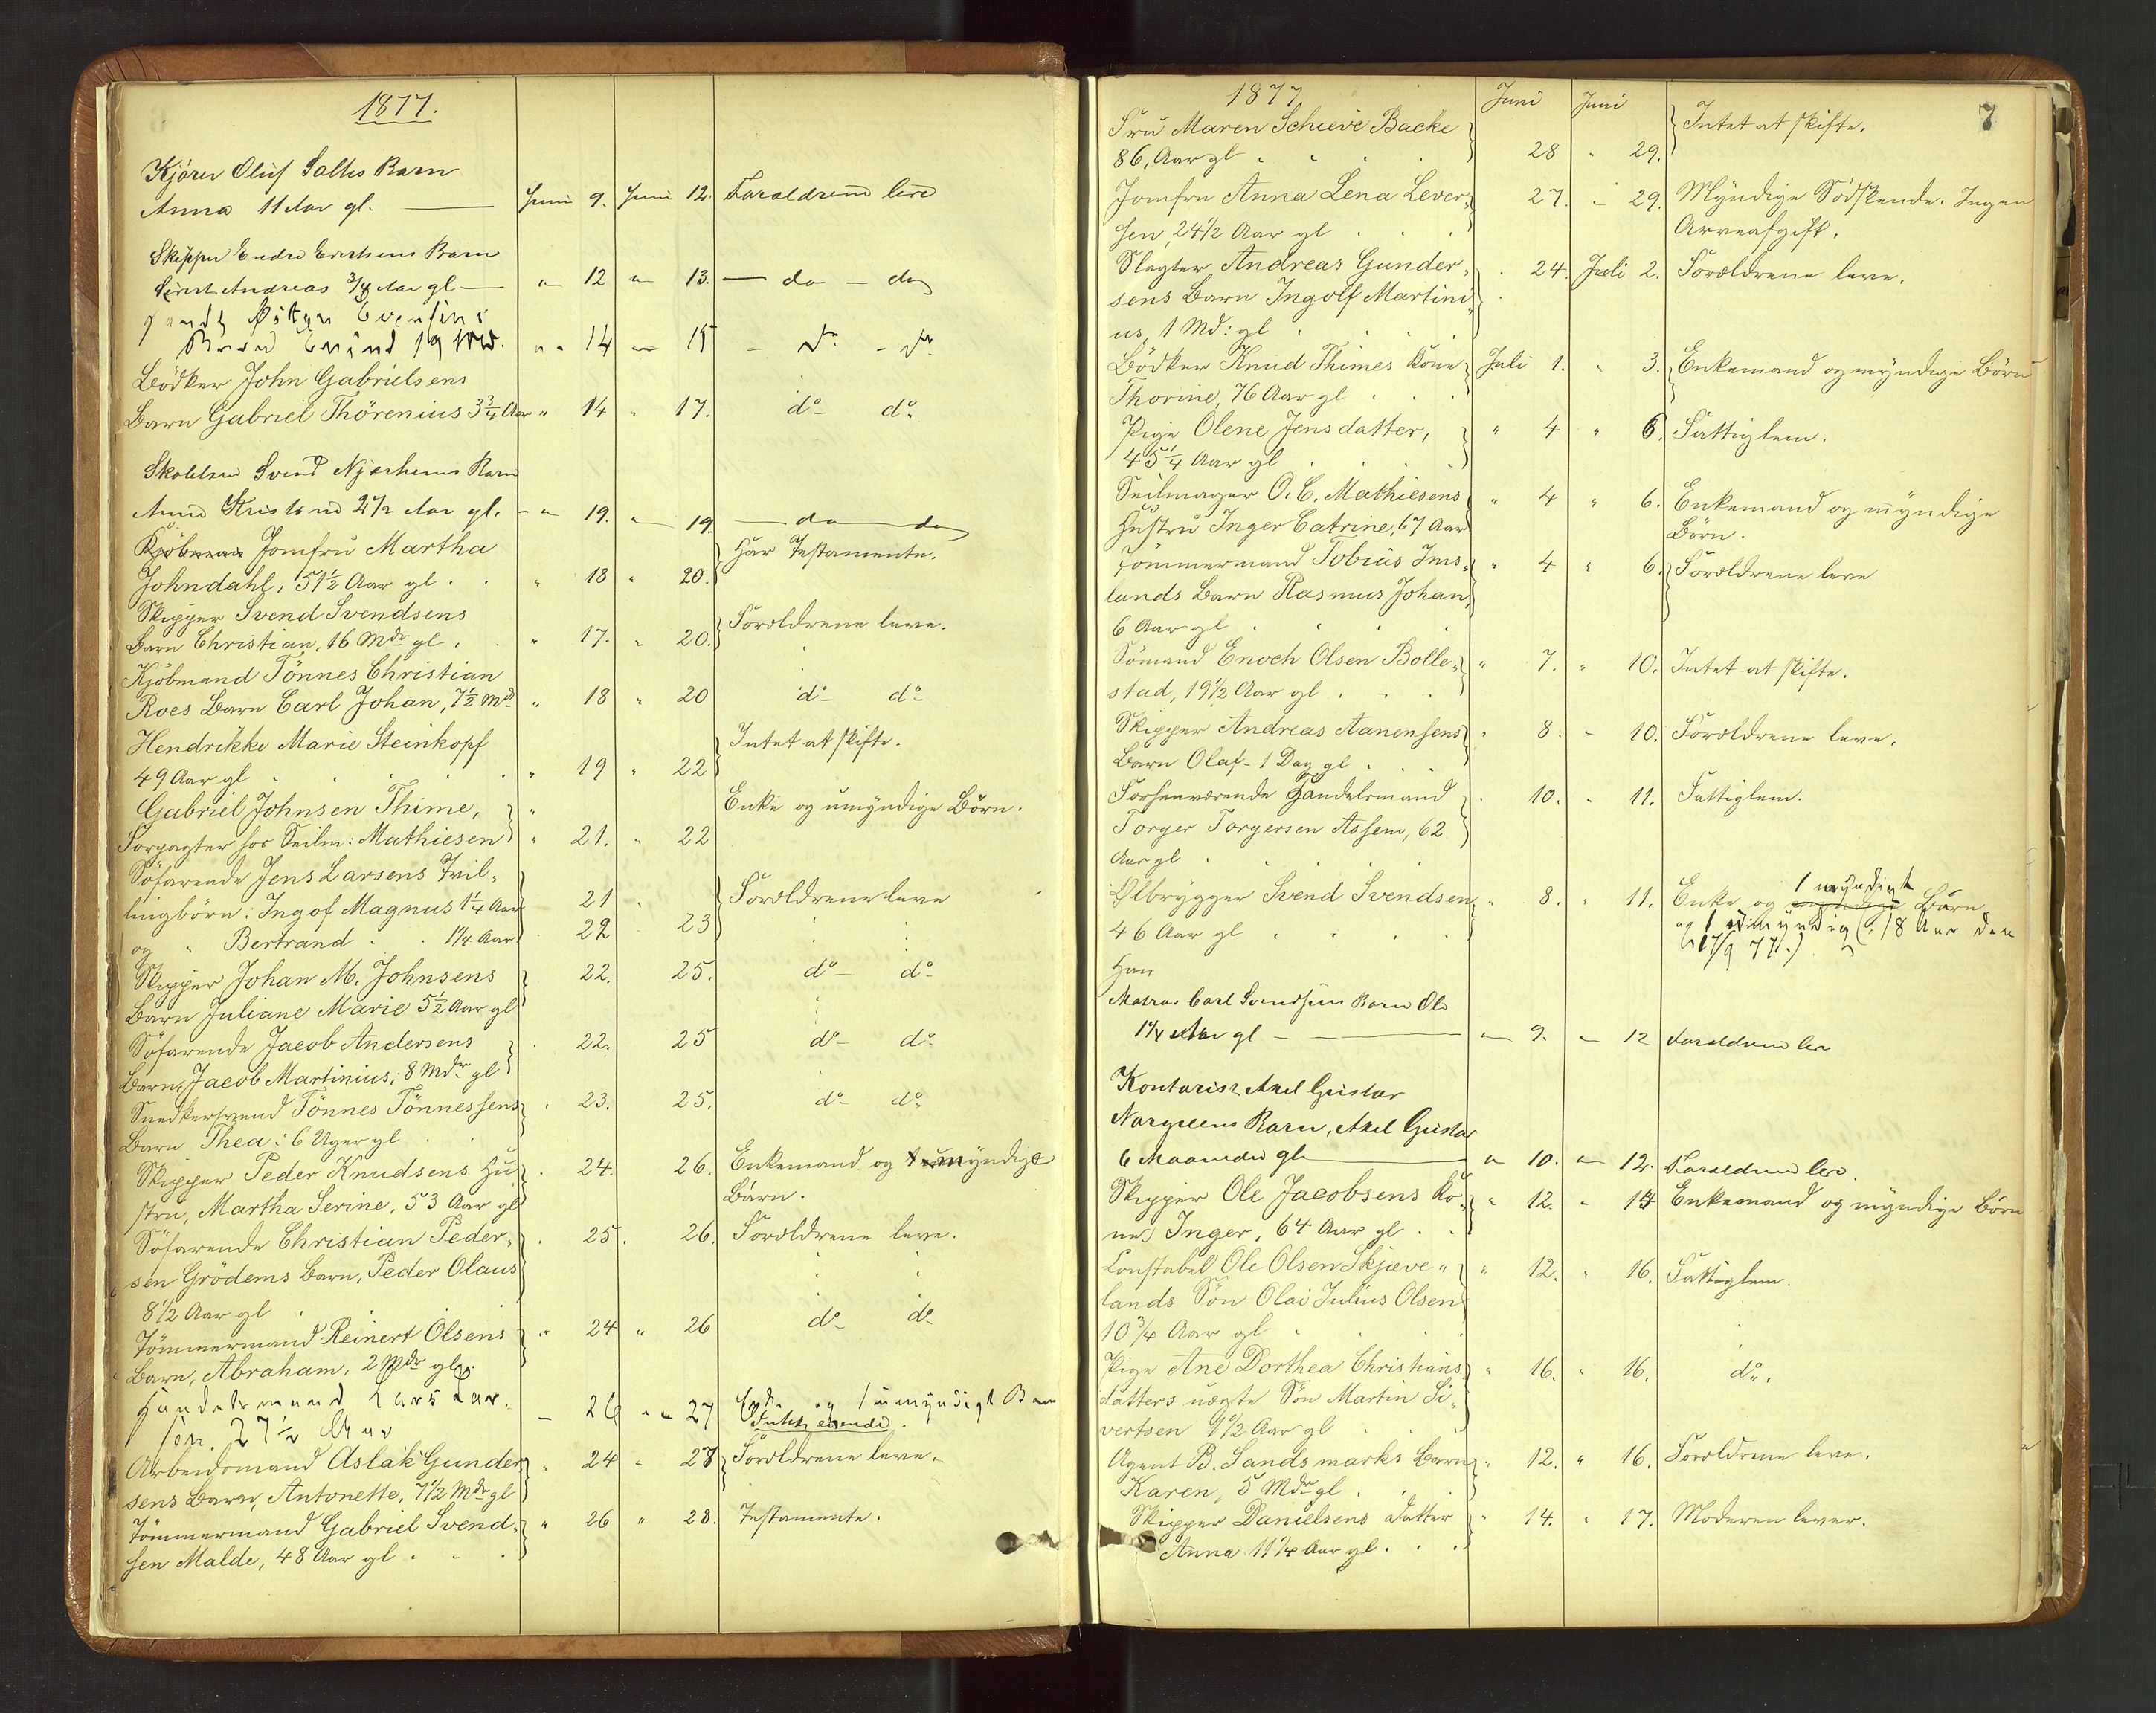 1877.
Kjører Oluf Saltes Barn
Anna 11 Aar gl. Juni 9. Juni 12. Foreldrene leve
Skipper Endre Barn
Andreas 3/4 Aar gl " 12 " 13. do do
14 15 do do
Bödker John Gabrielsens
Barn Gabriel Thörenius 3 3/4 Aar " 14 " 17. do do
Svend Njærheims Barn
Anna 2 1/2 Aar gl. " 19. " 19. do do
Kjöbmand Jomfru Martha Har Testamente.
Johndahl, 51 1/2 Aar gl. " 18 " 20.
Skipper Svend Svendsens Forældrene leve.
Barn Christian, 16 Mdr gl. " 17. " 20.
Kjöbmand Tönnes Christian
Roes Barn Carl Johan, 7 1/2 Md " 18 " 20 do do
Hendrikke Marie Steinkopf Intet at skifte.
49 Aar gl " 19 " 22
Gabriel Johnsen Thime, Enke og umyndige Börn.
Forpagter hos Seilm: Mathiesen " 21. " 22
Söfarende Jens Larsens Tvil-
lingbörn: Ingof Magnus 1 1/4 Aar 21 " Forældrene leve
og " Bertrand 1 1/4 Aar 22 23
Skipper Johan M. Johnsens 22. 25. do do
Barn Juliane Marie 5 1/2 Aar gl
Söfarende Jacob Andersens 22. 25 do do
Barn, Jacob Martinius, 8 Mdr gl
Snedkersvend Tönnes Tönnessens 23. 25. do do
Barn Thea: 6 Uger gl
Skipper Peder Knudsens Hu- 24. 26. Enkemand og umyndige
stru, Martha Serine, 53 Aar gl Börn.
Söfarende Christian Peder- 25. 26. Forældrene leve.
sen Grödems Barn, Peder Olaus
8 1/2 Aar gl
Tömmermand Reinert Olsens " 24 " 26 do do
Barn, Abraham, 2 Mdr gl.
Handelsmand Lars Lar- 26 " 27 og 1 umyndigt Barn
sen. 27 1/2 Aar
Arbeidsmand Aslak Gunder- " 24 " 27 Forældrene leve.
sens Barn, Antonette, 7 1/2 Mdr gl
Tömmermand Gabriel Svend- " 26 " 28. Testamente.
sen Malde, 48 Aar gl
1877 Juni Juni 7
Fru Maren Schieve Backe Intet at skifte.
86, Aar gl 28 " 29.
Jomfru Anna Lena Lever- 27. " 29. Myndige Sødskende. Ingen
sen, 24 1/2 Aar gl Arveafgift.
Slagter Andreas Gunder- 24. Juli 2. Forældrene leve.
sens Barn Ingolf Martini
us, 1 Md: gl
Bödker Knud Thimes Kone Juli 1. " 3. Enkemand og myndige Börn
Thorine, 76 Aar gl
Pige Olene Jensdatter, " 4 " 6. Fattiglem.
45 1/4 Aar gl
Seilmager O. C. Mathiesens " 4 " 6. Enkemand og myndige
Hustru Inger Catrine, 67 Aar Börn.
Tömmermand Tobias Ims- " 4 " 6. Forældrene leve
lands Barn Rasmus Johan,
6 Aar gl
Sömand Enoch Olsen Bolle- " 7. " 10. Intet at skifte.
stad, 19 1/2 Aar gl
Skipper Andreas Aanensens " 8. " 10. Forældrene leve.
Barn Olaf - 1 Dag gl
Forhenværende Handelsmand 10. " 11. Fattiglem.
Torger Torgersen Assem, 62
Aar gl
Ølbrygger Svend Svendsen, " 8. " 11. Enke og 1 myndigt Barn
46 Aar gl og 1 umyndig (: 18 Aar den
17/9 77.)
Han
Matros Carl Svendsens Barn Ole
1 1/4 Aar gl " 9. " 12 Foreldrene leve
Kontorist Axel Gustav
Norgreens Barn, Axel Gustav
6 Maaneder gl " 10. " 12. Foreldrene leve.
Skipper Ole Jacobsens Ko- " 12. " 14 Enkemand og myndige Börn
ne Inger, 64 Aar gl
Constabel Ole Olsen Skjæve- " 12. " 16. Fattiglem.
lands Sön Olai Julius Olsen
10 3/4 Aar gl
Pige Ane Dorthea Christians- " 16. " 16. do.
datters uægte Sön Martin Si-
vertsen 1 1/2 Aar gl
Agent B. Sandsmarks Barn " 12. " 16. Forældrene leve.
Karen, 5 Mdr gl
Skipper Danielsens Datter " 14. " 17. Moderen lever.
Anna 11 1/4 Aar gl.